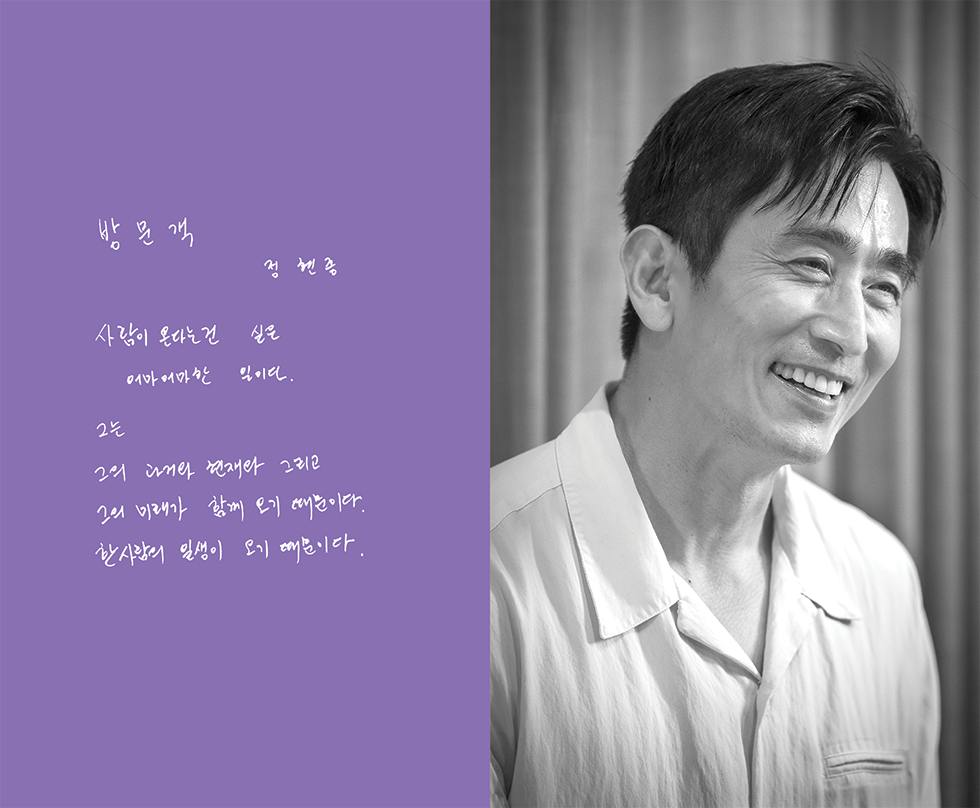 방문객
정현종
사람이 온다는건 실은
어마어마한 일이다.
그는
그의 과거와 현재와 그리고
그의 미래가 함께 오기 때문이다.
한사람의 일생이 오기 때문이다.